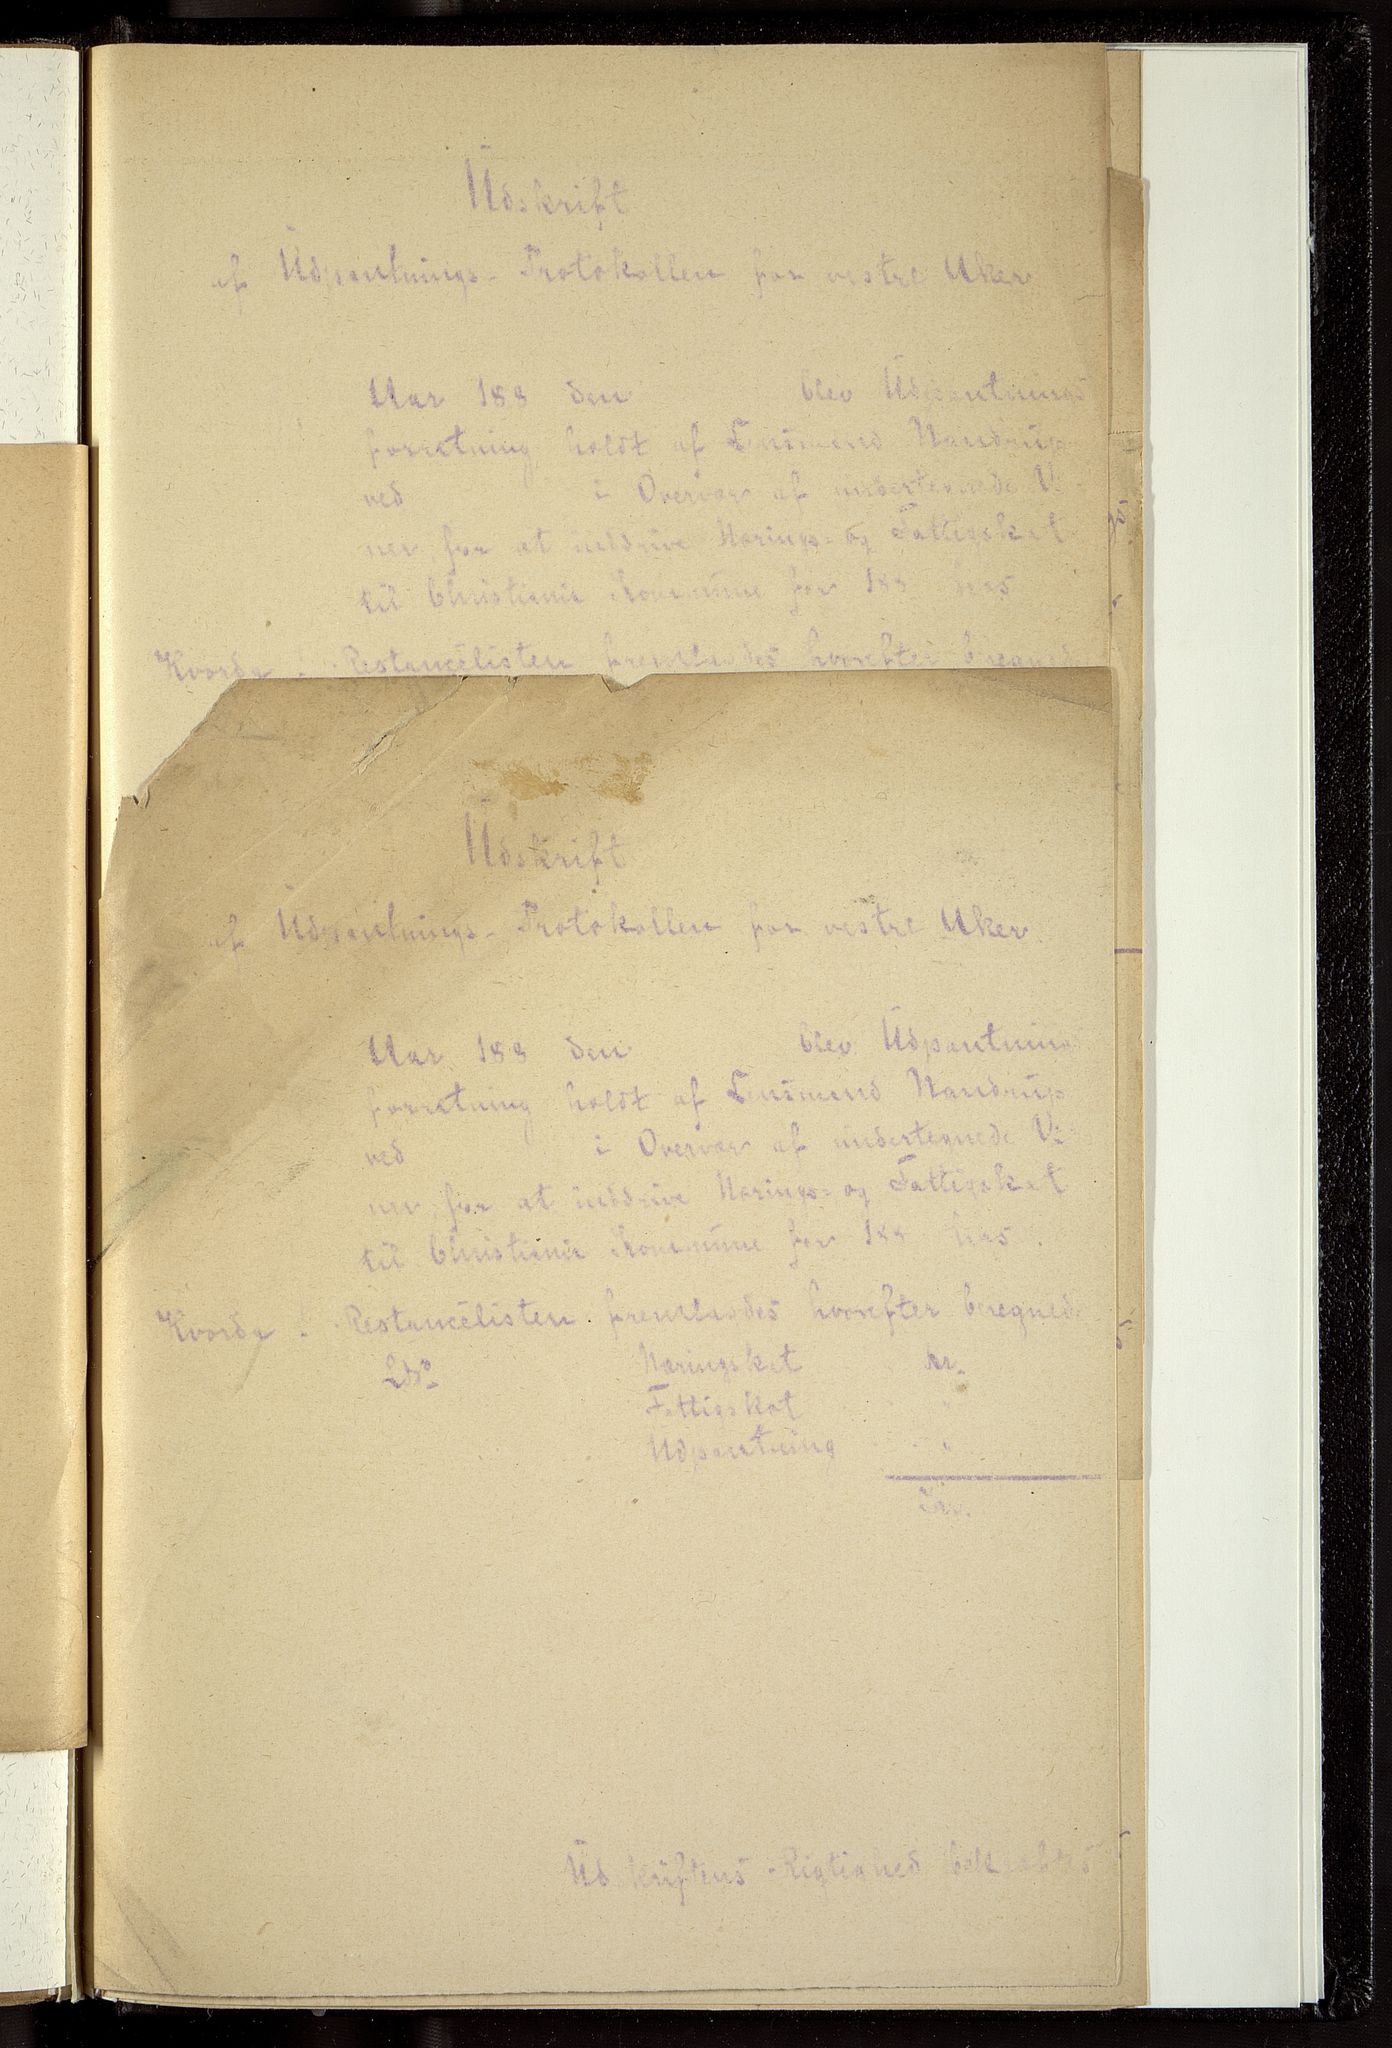 Udskrift
af Udpantnings-Protokollen for vestre Aker
Aar 188 den blev Udpantnings
forretning holdt af Lensmand Nandrup
ved i Overvær af undertegnede Vi
ner, for at inddrive Nærings- og Fattigskat
til Christiania Kommune for 188 hos
Hvorda Restancelisten fremlagdes hvorefter beregned
Udskrift
af Udpantnings-Protokollen for vestre Aker
Aar 188 den blev Udpantning
forretning holdt af Lensmand Nandrup
ved i Overvær af undertegnede Vi
ner, for at inddrive Nærings- og Fattigskat
til Christiania Kommune for 188 hos.
Hvorda Restancelisten fremlagdes hvorefter beregned
LNo Næringskat Kr.
Fattigskat "
Udpantning "
Kr.
Udskriftens Rigtighed bekræftes